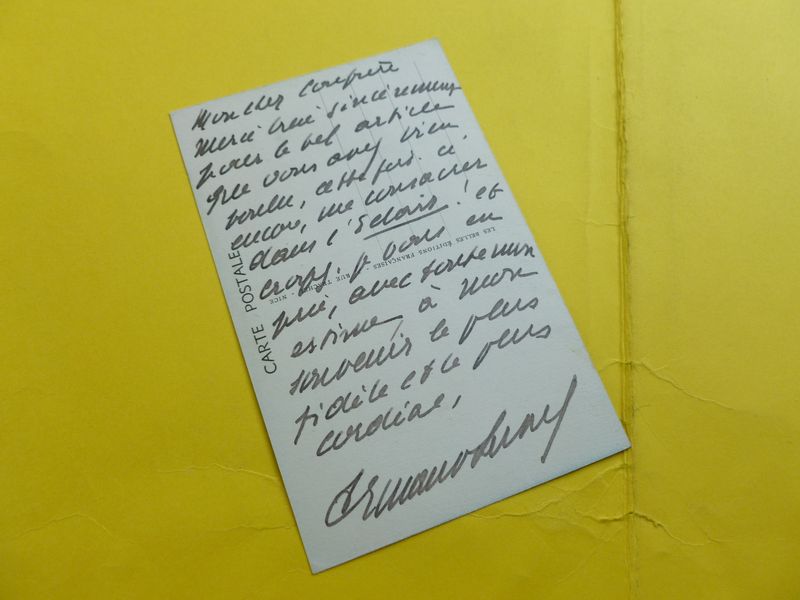 Mon cher Confrère
Merci bien sincèrement
pour le bel article
que vous avez bien
voulu, cette fois-ci,
encore, me consacrer
dans l'Eclair! et
croyez, je vous en
prie, avec toute mon
estime, à mon
souvenir le plus
fidèle et le plus
cordial,
Armand Lunel
CARTE POSTALE
LES BELLES ÉDITIONS FRANÇAISES - RUE - NICE